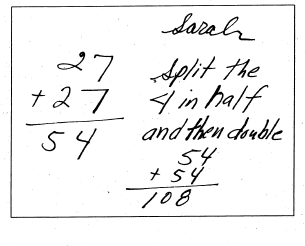 Sarah
27
+ 27
54
split the
4 in half
and then double
54
+ 54
108